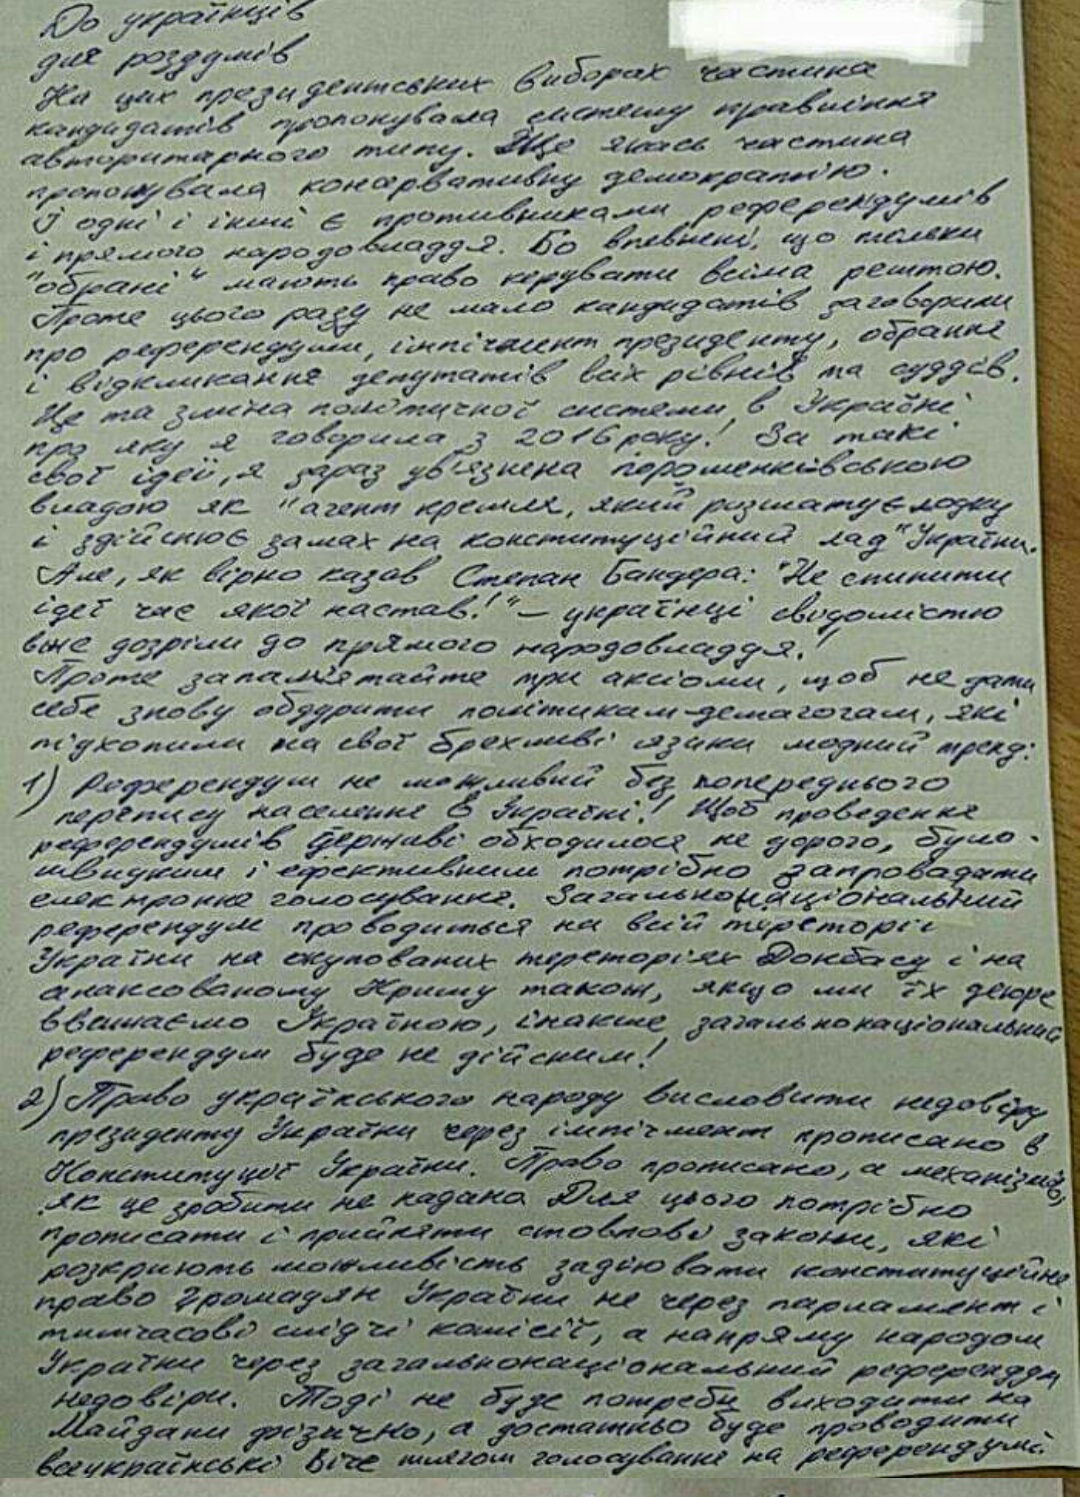 До українців
для роздумів
На цих президентських виборах частина
кандидатів пропонувала систему правління
авторитарного типу. Ще якась частина
пропонувала консервативну демократію.
І одні і інші є противниками референдумів
і прямого народовладдя. Бо впевнені, що тільки
"обрані" мають право керувати всіма рештою.
Проте цього разу не мало кандидатів заговорили
про референдуми, імпічмент президенту, обрання
і відкликання депутатів всіх рівнів та суддів.
Це та зміна політичної системи в Україні
про яку я говорила з 2016 року! За такі
свої ідеї, я зараз ув'язнена порошенківською
владою як "агент кремля, який розшатує лодку
і здійснює замах на конституційний лад" України.
Але, як вірно казав Степан Бандера: "Не спинити
ідеї час якої настав!" – українці свідомістю
вже дозріли до прямого народовладдя!
Проте запам'ятайте три аксіоми, щоб не дати
себе знову обдурити політикам-демагогам, які
підхопили на свої брехливі язики модний тренд:
1) Референдум не можливий без попереднього
перепису населення в Україні! Щоб проведення
референдумів державі обходилося не дорого, було
швидким і ефективним потрібно запровадити
електронне голосування. Загальнонаціональний
референдум проводиться на всій територіі
України на окупованих територіях Донбасу і на
анаксованому Криму також, якщо ми їх деюре
ввижаємо Україною, інакше загальнонаціональний
референдум буде не дійсним!
2) Право українського народу висловити недовіру
президенту України через імпічмент прописано в
Конституції України. Право прописано, а механізмів,
як це зробити не надано Для цього потрібно
прописати і прийняти стовпові закони, які
розкриють можливість задіювати конституційне
право громадян України не через парламент і
тимчасові слідчі комісії, а напряму народом
України через загальнонаціональний референдум
недовіри. Тоді не буде потреби виходити на
Майдани фізично, а достатньо буде проводити
всеукраїнські Віче шляхом голосування на референдумі.